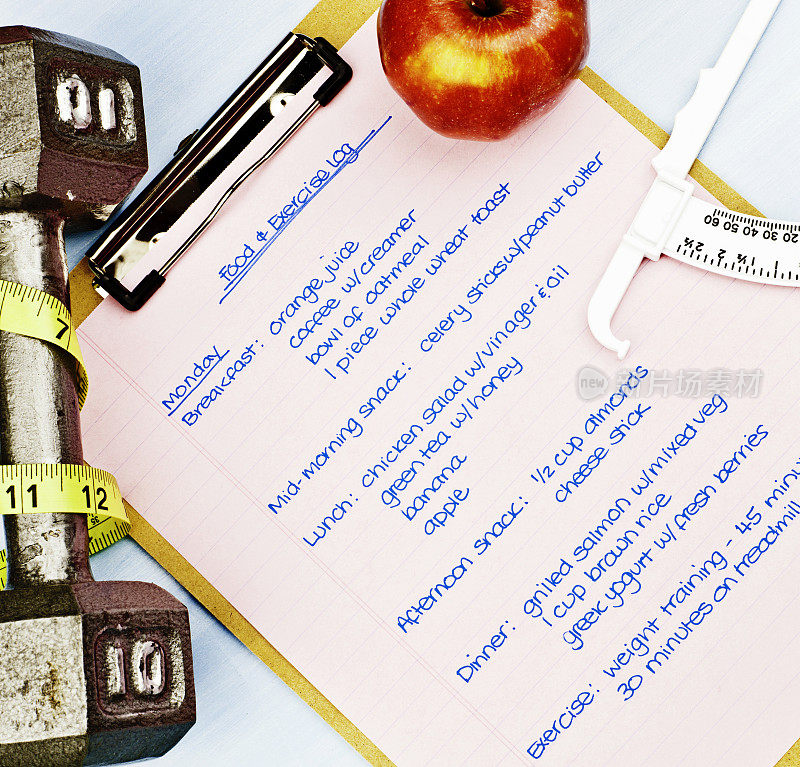 Food & Exercise Log
Monday
Breakfast: orange juice
coffee w/creamer
bowl of oatmeal
1 piece whole wheat toast
Mid-morning snack: celery sticks w/peanut butter
Lunch: chicken salad w/vinager & oil
green tea w/honey
banana
apple
Afternoon snack: 1/2 cup almonds
cheese stick
Dinner: grilled salmon w/mixed veg
1 cup brown rice
greek yogurt w/ fresh berries
Exercise: weight training - 45 minu
30 minutes on treadmill
10
10
7
11 12
60 50 40 30 20
2½ 2 1½
new 新片场素材